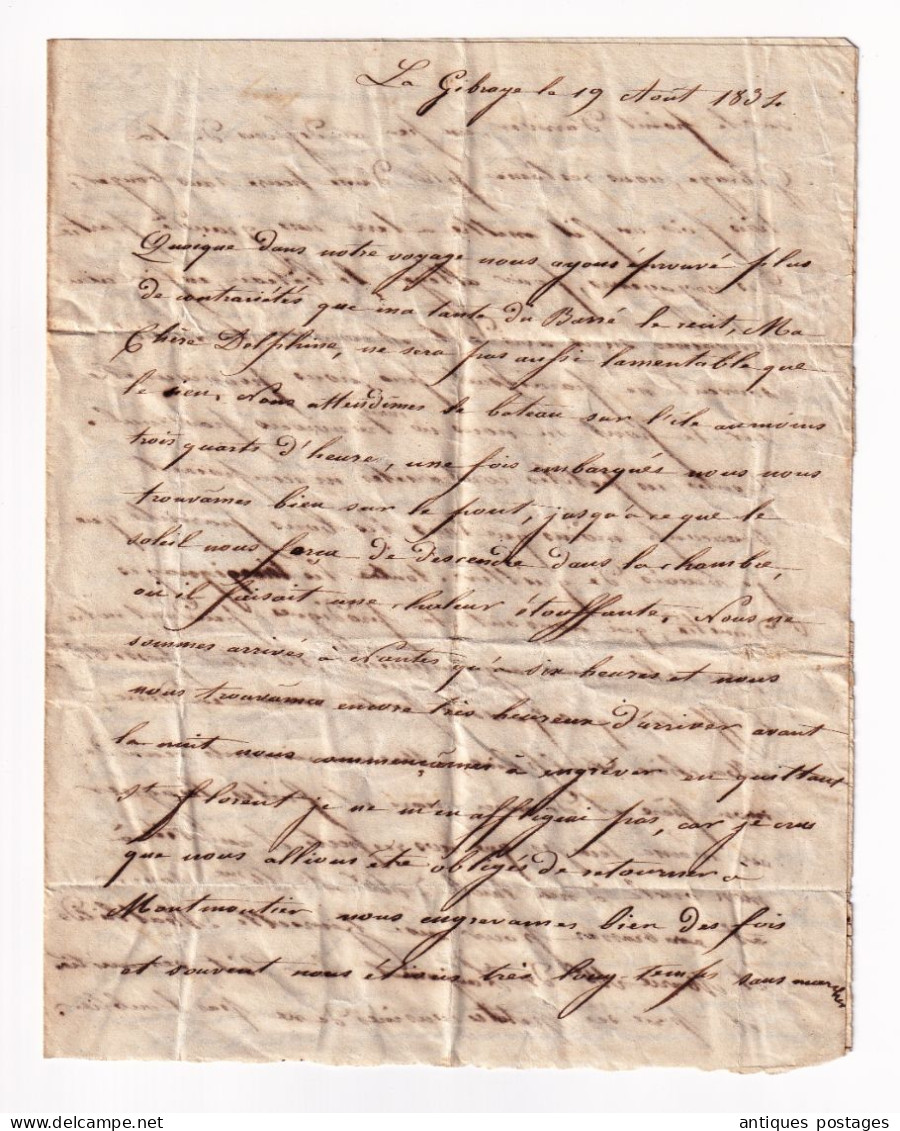 La Gibraye le 19 Août 1834
Quoique dans notre voyage nous ayons éprouvé plus
de contrariétés que ma tante du Barré le récit, Ma
Chère Delphine, ne sera pas aussi lamentable que
le sien. Nous attendîmes le bateau sur l'île au moins
trois quarts d'heure, une fois embarqués nous nous
trouvâmes bien sur le pont, jusqu'à ce que le
soleil nous força de descendre dans la chambre,
où il faisait une chaleur étouffante. Nous ne
sommes arrivés à Nantes qu'à six heures et nous
nous trouvâmes encore très heureux d'arriver avant
la nuit nous commençâmes à engrever en quittant
St Florent je ne m'en affligeai pas, car je crus
que nous allions été obligés de retourner à
Montmoutier nous engravames bien des fois
et souvent nous étions très long-temps sans marcher
antiques postages